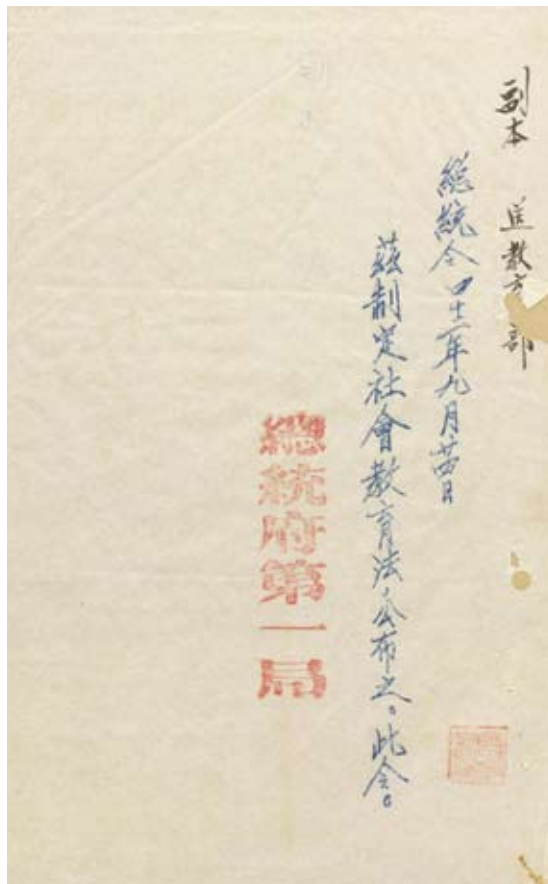 副本 送教育部
總統令 四十二年九月廿四日
茲制定社會教育法，公布之。此令。
總統府第一局